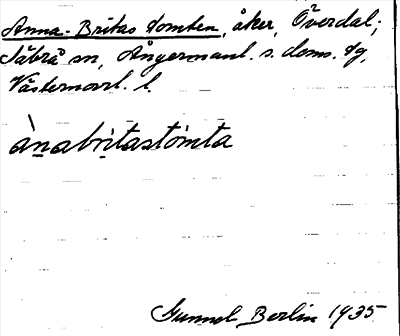 Anna-Britas tomten, åker, Överdal;
Säbrå sn, Ångermanl. s. doms. tg,
Västernorrl. l.
ànabritastòmta
Gunnel Berlin 1935